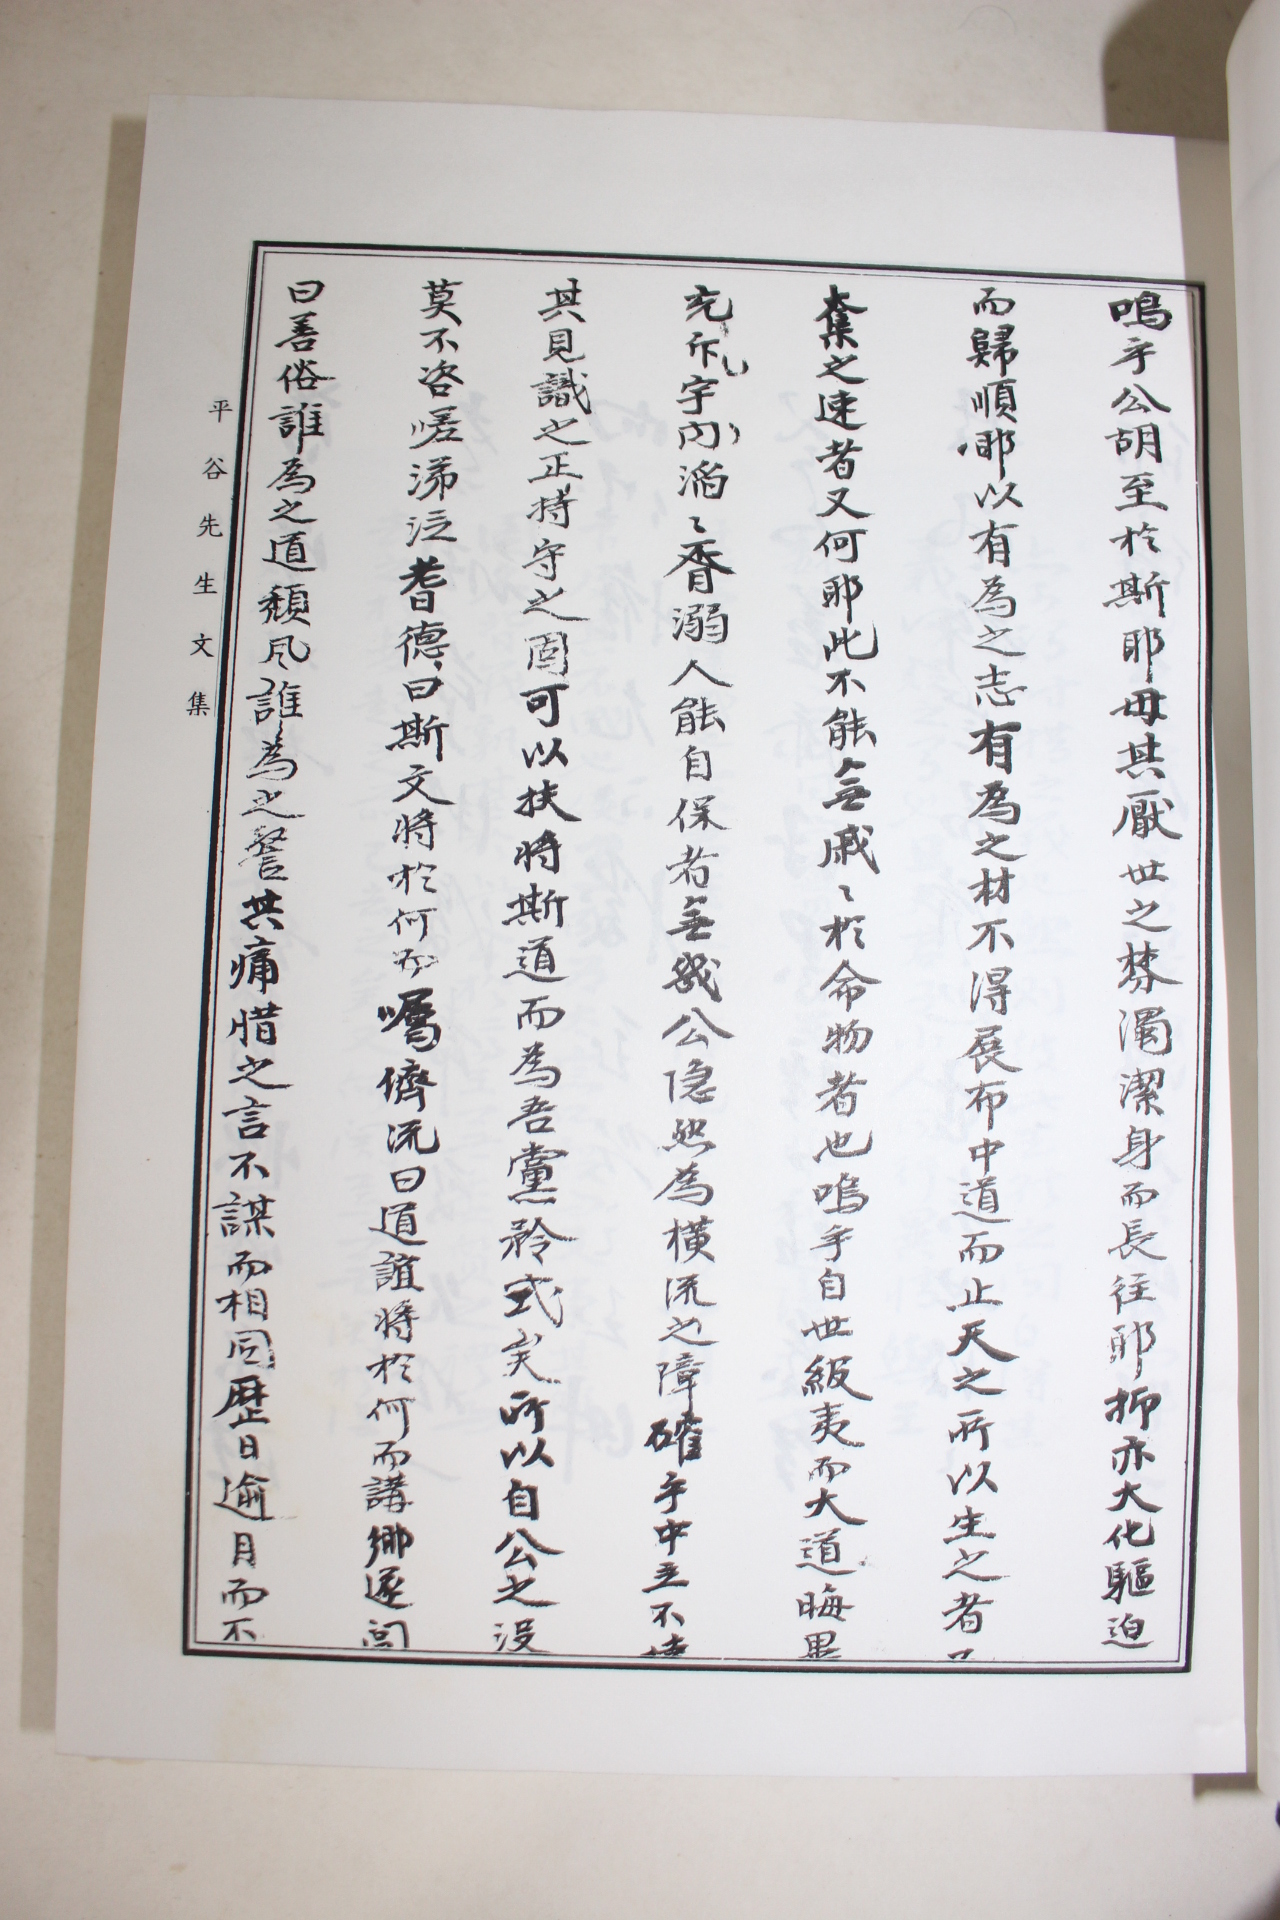 嗚乎公胡至於斯耶毋其厭世之棼濁潔身而長往耶抑亦大化驅迫
而歸順耶以有為之志有為之材不得展布中道而止天之所以生之者
奪之速者又何耶此不能無戚〻於命物者也嗚乎自世級夷而大道晦異
充斥宇內滔〻胥溺人能自保者無幾公隐然為橫流之障確乎中立不
其見識之正持守之固可以扶將斯道而為吾黨矜式矣所以自公之沒
莫不咨嗟涕泣耆德曰斯文將於何而囑儕流曰道誼將於何而講鄉邃閭
曰善俗誰為之道頹风誰為之警其痛惜之言不謀而相同歷日逾月而不
平谷先生文集